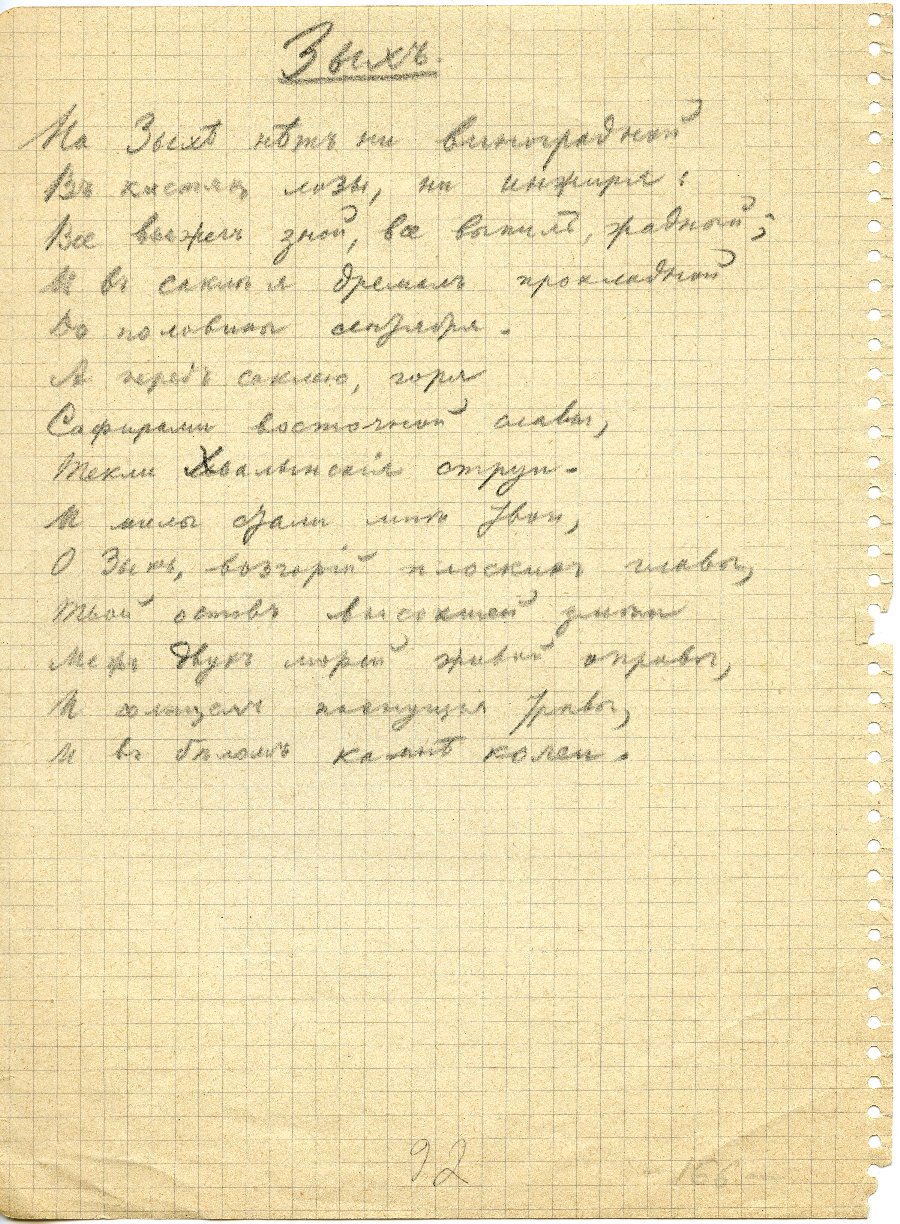 Зыхъ.
На Зыхѣ нѣтъ ни виноградной
Въ кистяхъ лозы, ни инжиря:
Все выжегъ зной, все выпилъ, жадный;
И въ саклѣ я дремалъ прохладной
До половины сентября.
А передъ саклею, горя
Сафирами восточной славы,
Текли Хвалынскія струи.
И милы стали мнѣ твои,
О Зыхъ, возгорій плоскихъ главы,
Твой остовъ высохшей змѣи
Межъ двухъ морей живой оправы,
И хлищемъ пахнущія травы,
И въ бѣломъ камнѣ колеи.
92
156